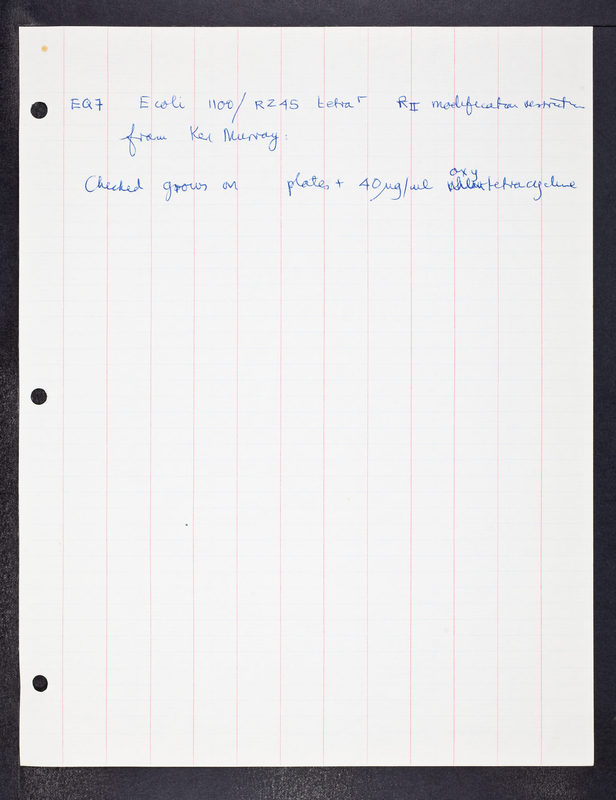 EQ7 E coli 1100/RZ45 tetraʳ RII modification restriction
from Ken Murray.
Checked grows on plates + 40µg/ml oxytetracycline